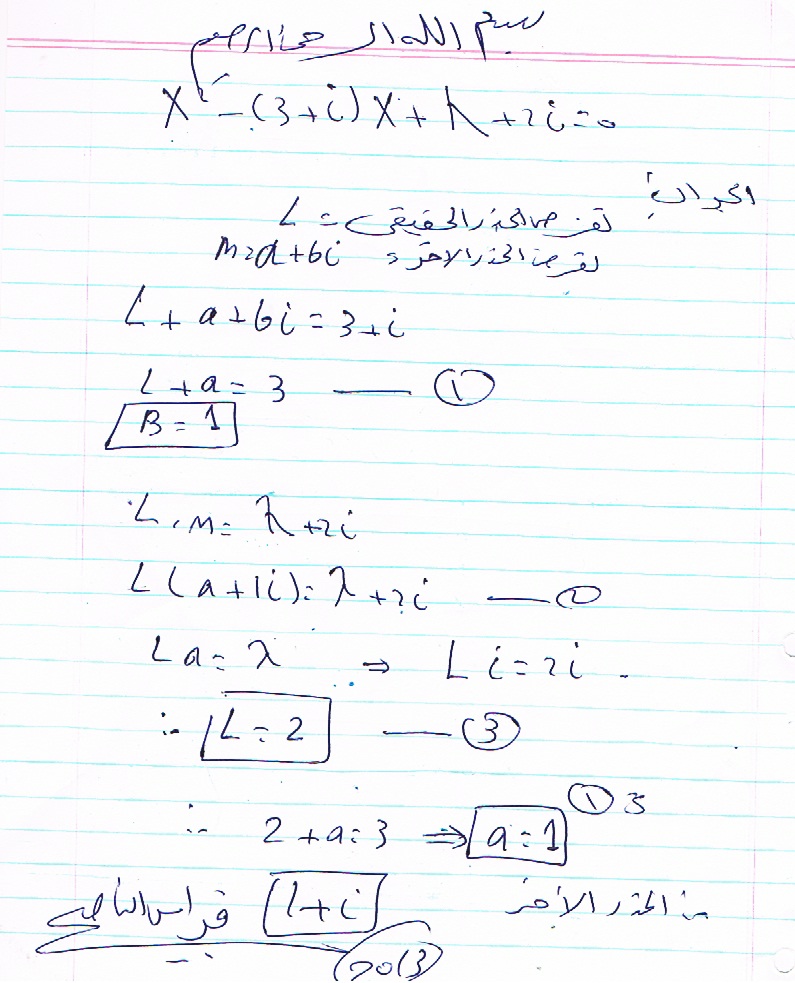 بسم الله الرحمن الرحيم
X² - (3+i) X + λ + 2i = 0
الجواب:
نفرض الجذر الحقيقي = L
نفرض الجذر الآخر = M = a + bi
L + a + bi = 3 + i
L + a = 3 —— ①
B = 1
L . M = λ + 2i
L (a + 1i) = λ + 2i —— ②
L a = λ ⇒ L i = 2i .
∴ L = 2 —— ③
① في
∴ 2 + a = 3 ⇒ a = 1
∴ الجذر الآخر 1 + i فراس
2013